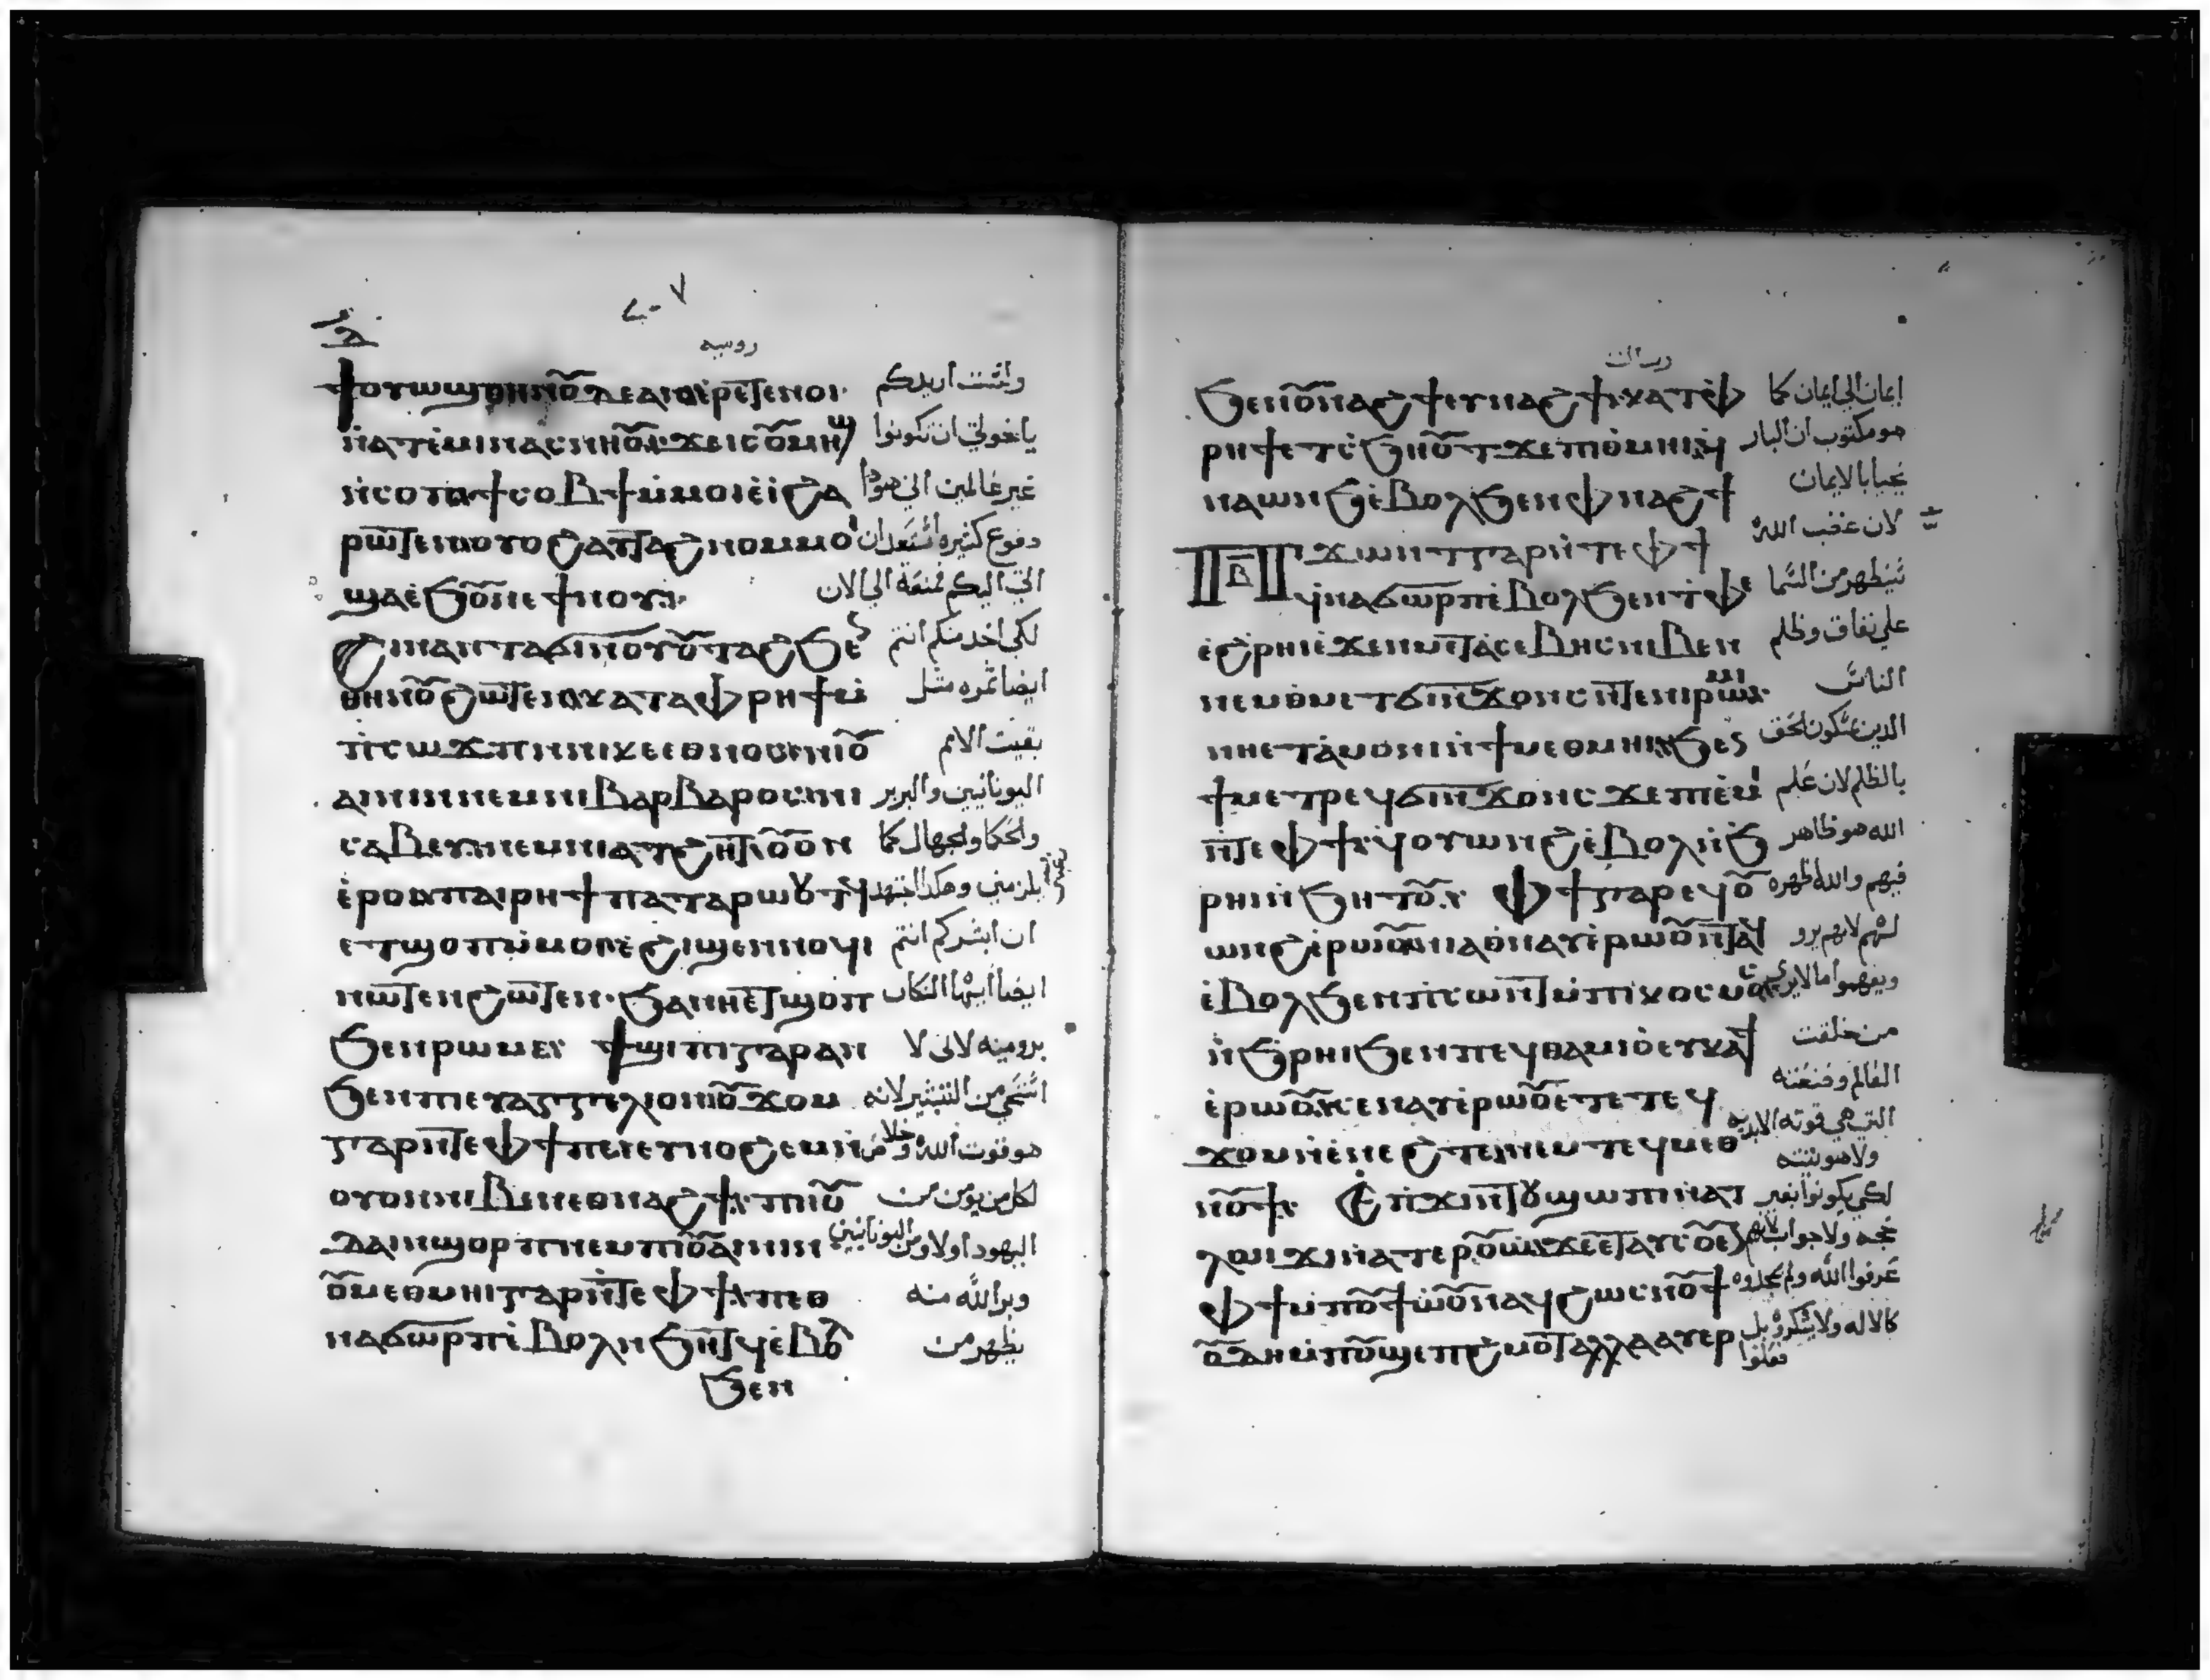 روميه
ϯⲟⲩⲱϣ ⲑⲏⲛⲟⲩ ⲇⲉ ⲁⲛ ⲉⲣⲉⲧⲉⲛⲟⲓ
وانست اريدكم
ⲛⲁⲧⲉⲙⲓ ⲛⲁⲥⲛⲏⲟⲩ ϫⲉ ⲓⲥ ⲟⲩⲙⲏϣ
يا اخوتي ان تكونوا
ⲛⲥⲟⲡ ϯⲥⲟⲃϯ ⲙⲙⲟⲓ ⲉⲓ ϩⲁ
غير عالمين اني هوذا
ⲣⲱⲧⲉⲛ ⲟⲩⲟϩ ⲁⲩⲧⲁϩⲛⲟ ⲙⲙⲟⲓ
دفوع كثيره استعد ان
ϣⲁ ⲉϧⲟⲩⲛ ⲉ ϯⲛⲟⲩ
اتي اليكم فمنعة الي الان
ϩⲓⲛⲁ ⲛⲧⲁϭⲓ ⲛⲟⲩⲟⲩⲧⲁϩ ϧⲉⲛ
لكي اخد منكم انتم
ⲑⲏⲛⲟⲩ ϩⲱⲧⲉⲛ ⲕⲁⲧⲁ ⲫⲣⲏϯ ⲙ
ايضا ثمره مثل
ⲡⲥⲱϫⲡ ⲛⲛⲓⲕⲉⲉⲑⲛⲟⲥ ⲛⲓⲟⲩ
بقيت الامم
ⲁⲛⲓⲛ ⲛⲉⲙ ⲛⲓⲃⲁⲣⲃⲁⲣⲟⲥ ⲛⲓ
اليونانيين والبربر
ⲥⲁⲃⲉⲩ ⲛⲉⲙ ⲛⲓⲁⲧϩⲏⲧ ⲟⲩⲟⲛ
والحكا والجهال كما
ⲉⲣⲟⲓ ⲡⲁⲓⲣⲏϯ ⲡⲁⲧⲁⲣⲱⲟⲩⲧϥ
يلزمني وهكدا اجتهد
ⲉⲧϣⲟⲡ ⲙⲙⲟⲓ ⲉϩⲓϣⲉⲛⲛⲟⲩϥⲓ
ان ابشركم انتم
ⲛⲱⲧⲉⲛ ϩⲱⲧⲉⲛ ϧⲁ ⲛⲏⲉⲧϣⲟⲡ
ايضا ايها السكان
ϧⲉⲛ ⲣⲱⲙⲏ ϯϣⲓⲡⲓ ⲅⲁⲣ ⲁⲛ
بروميه لاني لا
ϧⲉⲛ ⲡⲓⲉⲩⲁⲅⲅⲉⲗⲓⲟⲛ ⲟⲩϫⲟⲙ
استحي من التبشير لانه
ⲅⲁⲣ ⲛⲧⲉ ⲫϯ ⲡⲉ ⲉⲩⲛⲟϩⲉⲙ ⲛ
هو قوت الله وخلاص
ⲟⲩⲟⲛ ⲛⲓⲃⲉⲛ ⲉⲑⲛⲁϩϯ ⲡⲓⲓⲟⲩ
لكل من يؤمن من
ⲇⲁⲓ ⲛϣⲟⲣⲡ ⲛⲉⲙ ⲡⲓⲟⲩⲁⲛⲓⲛ
اليهود اولا ومن اليونانيين
ⲟⲩⲙⲉⲑⲙⲏⲓ ⲅⲁⲣ ⲛⲧⲉ ⲫϯ ⲡⲉⲑ
وبر الله منه
ⲛⲁϭⲱⲣⲡ ⲉⲃⲟⲗ ⲛϧⲏⲧϥ ⲉⲃⲟⲗ
يظهر من
ϧⲉⲛ
ϧⲉⲛ ⲟⲩⲛⲁϩϯ ⲉⲩⲛⲁϩϯ ⲕⲁⲧⲁ ⲫ
ايمان الي ايمان كما
ⲣⲏϯ ⲉⲧⲥϧⲏⲟⲩⲧ ϫⲉ ⲡⲓⲑⲙⲏⲓ
هو مكتوب ان البار
ⲛⲁⲱⲛϧ ⲉⲃⲟⲗ ϧⲉⲛ ⲫⲛⲁϩϯ
يحيا بالايمان
ⲡϫⲱⲛⲧ ⲅⲁⲣ ⲛⲧⲉ ⲫϯ
لان غضب الله
ϥⲛⲁϭⲱⲣⲡ ⲉⲃⲟⲗ ϧⲉⲛ ⲧⲫⲉ
سيظهر من السما
ⲉϩⲣⲏⲓ ⲉϫⲉⲛ ⲙⲉⲧⲁⲥⲉⲃⲏⲥ ⲛⲓⲃⲉⲛ
علي نفاق وظلم
ⲛⲉⲙ ⲑⲙⲉⲧϭⲓⲛϫⲟⲛⲥ ⲛⲧⲉ ⲛⲓⲣⲱⲙⲓ
الناس
ⲛⲏⲉⲧⲁⲙⲟⲛⲓ ⲛϯⲙⲉⲑⲙⲏⲓ ϧⲉⲛ
الدين يمسكون الحق
ϯⲙⲉⲧⲣⲉϥϭⲓⲛϫⲟⲛⲥ ϫⲉ ⲡⲉⲙⲓ
بالظلم لان علم
ⲛⲧⲉ ⲫϯ ϥⲟⲩⲱⲛϩ ⲉⲃⲟⲗ ⲛϧ
الله هو ظاهر
ⲣⲏⲓ ⲛϧⲏⲧⲟⲩ ⲫϯ ⲅⲁⲣ ⲉϥⲟⲩ
فيهم والله اظهره
ⲱⲛϩ ⲉⲣⲱⲟⲩ ⲛⲁⲑⲛⲁⲩ ⲉⲣⲱⲟⲩ ⲛⲧⲁϥ
لهم لانهم يرو
ⲉⲃⲟⲗ ϧⲉⲛ ⲡⲥⲱⲛⲧ ⲙⲡⲓⲕⲟⲥⲙⲟⲥ
ويفهموا ما لا يري
ⲛϧⲣⲏⲓ ϧⲉⲛ ⲡⲉϥⲑⲁⲙⲓⲟ ⲉⲩⲕⲁϯ
من خلقت
ⲉⲣⲱⲟⲩ ⲥⲉⲛⲁⲩ ⲉⲣⲱⲟⲩ ⲉⲧⲉ ⲧⲉϥ
العالم وصنعته
ϫⲟⲙ ⲛⲉⲛⲉϩ ⲧⲉ ⲛⲉⲙ ⲧⲉϥⲙⲉⲑ
التي هي قوته الابديه
ولاهوتيته
ⲛⲟⲩϯ ⲉⲡϫⲓⲛⲧⲟⲩϣⲱⲡⲓ ⲛⲁⲧ
لكي يكونوا بغير
ⲗⲱⲓϫⲓ ⲛⲁⲧⲉⲣⲟⲩⲱ ϫⲉ ⲉⲧⲁⲩⲥⲟⲩⲉⲛ
حجه ولا جواب لانهم
ⲫϯ ⲙⲡⲟⲩϯⲱⲟⲩ ⲛⲁϥ ϩⲱⲥ ⲛⲟⲩϯ
عرفوا الله ولم يمجدوه
ⲟⲩⲇⲉ ⲙⲡⲟⲩϣⲉⲡϩⲙⲟⲧ ⲁⲗⲗⲁ ⲁⲩⲉⲣ
كالاله ولا يشكروه بل
فعلوا